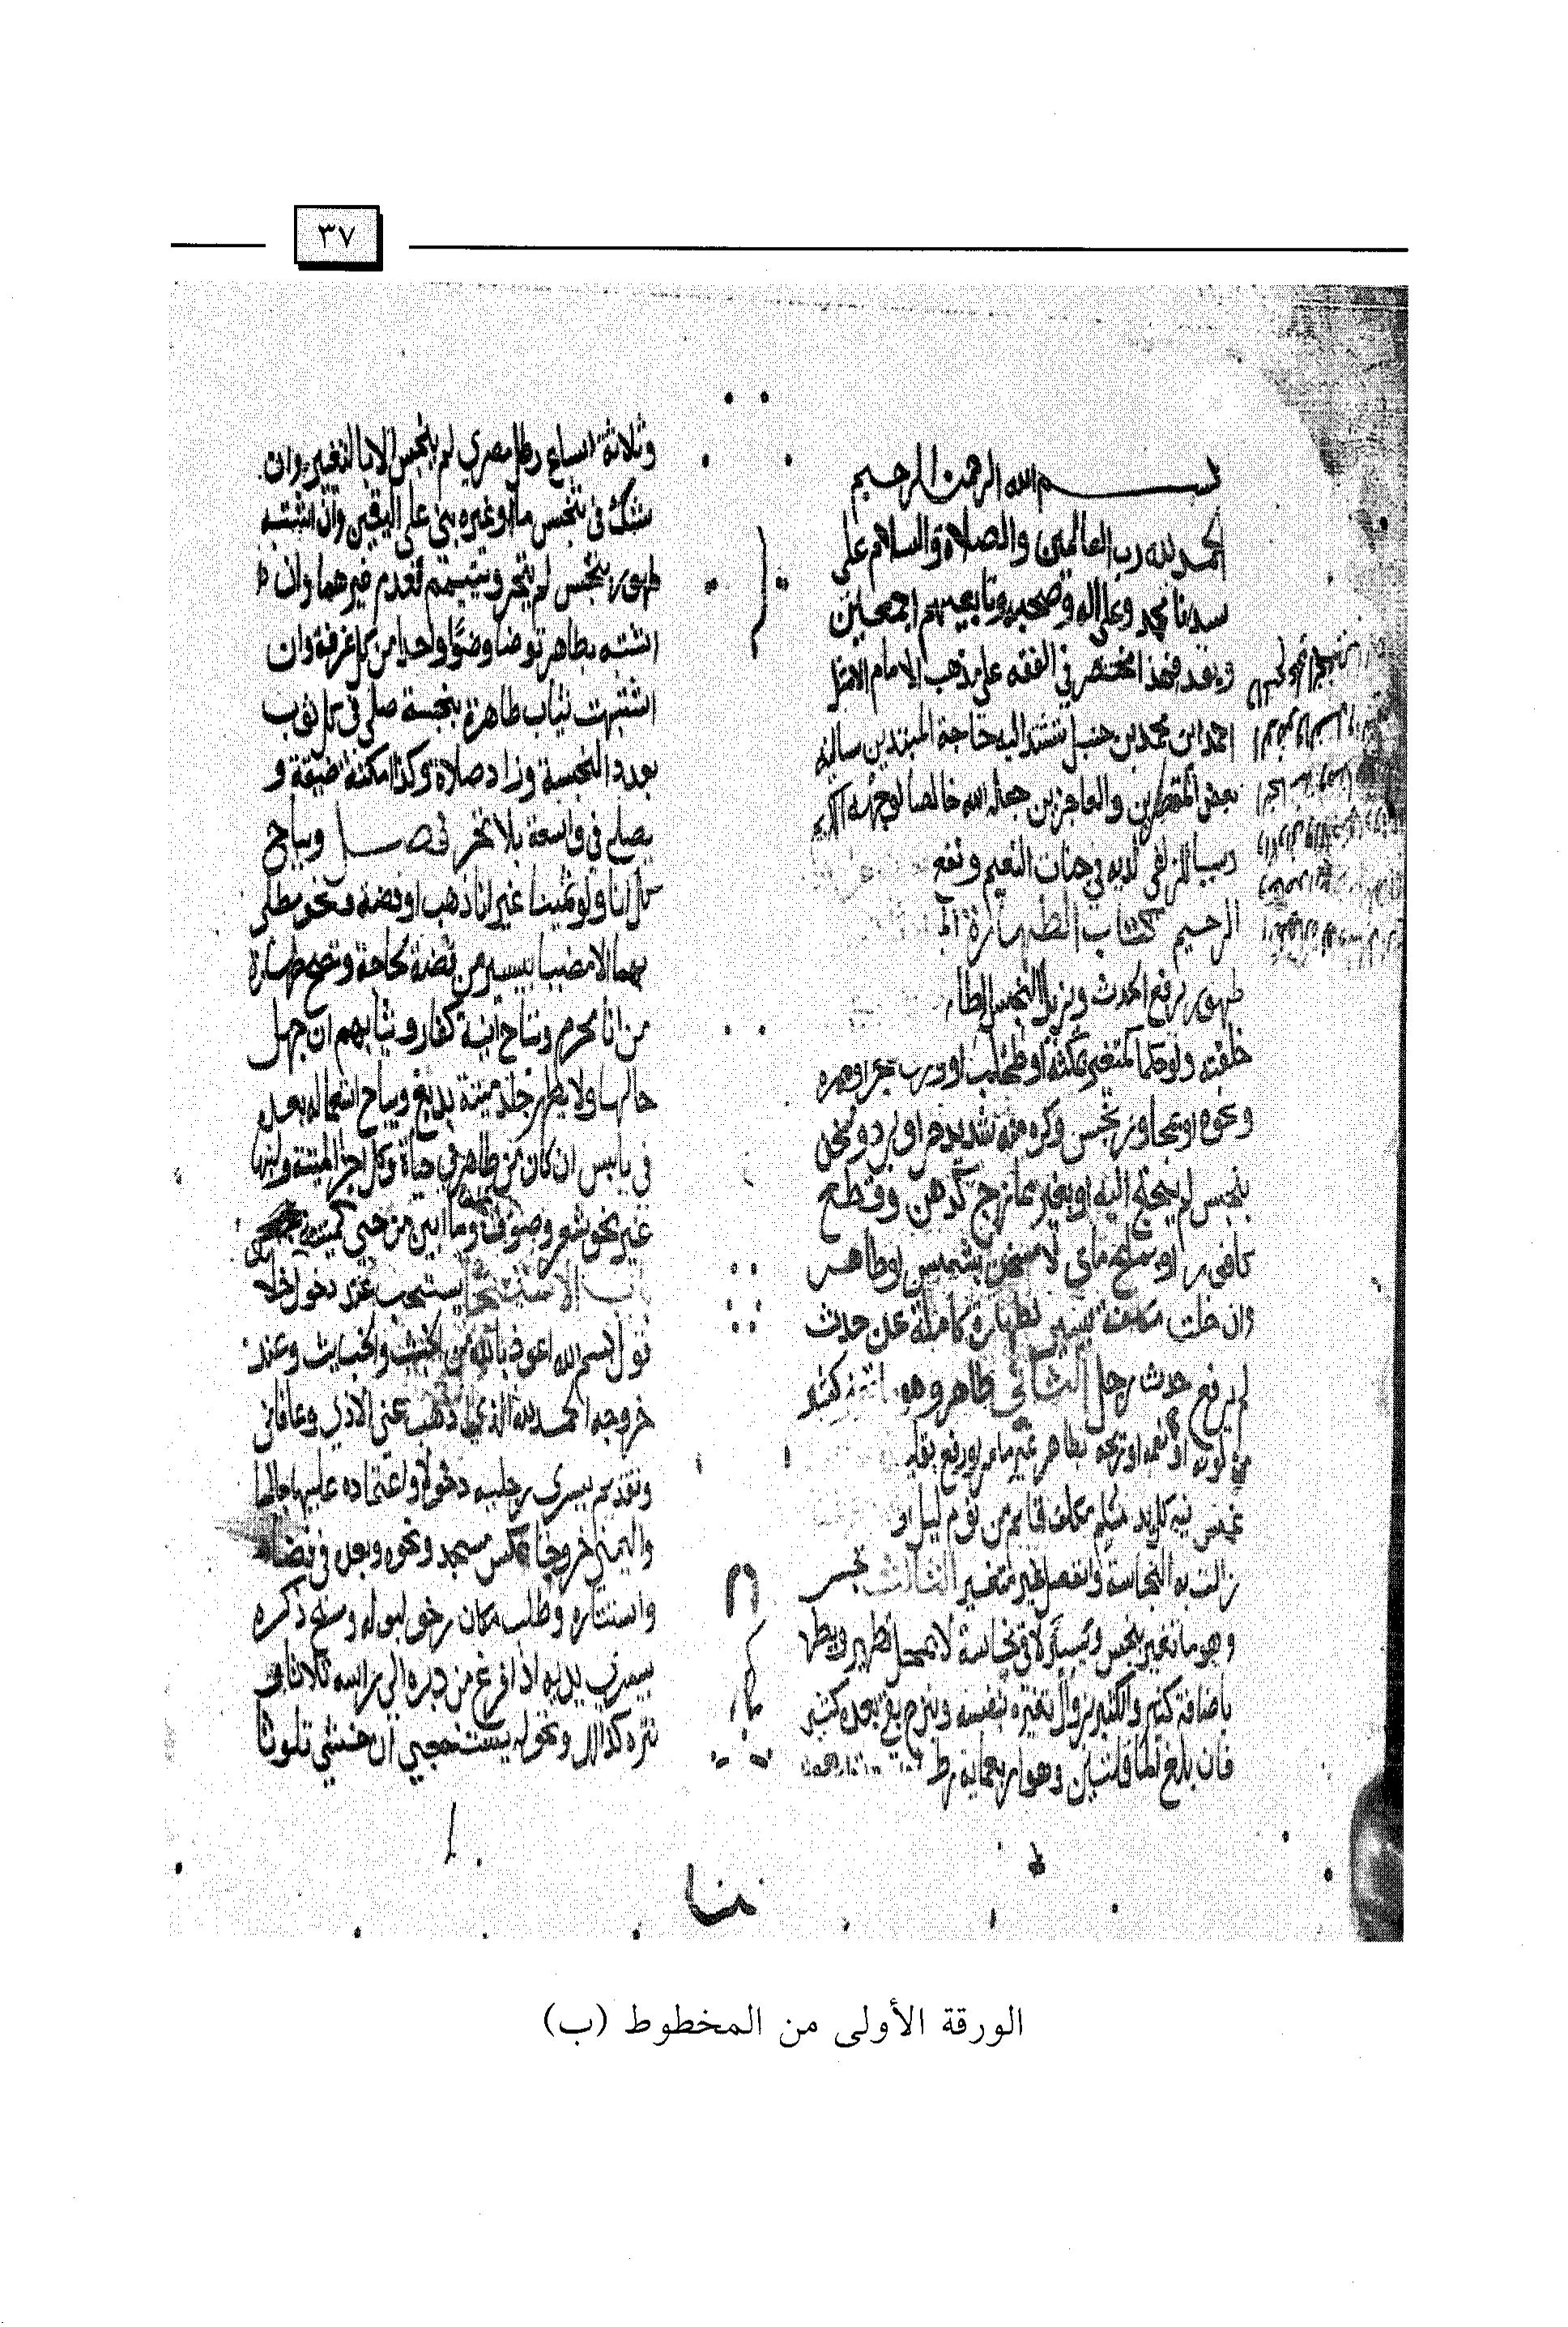 ٣٧
بسم الله الرحمن الرحيم
الحمد لله رب العالمين والصلاة والسلام على
سيدنا محمد وعلى اله وصحبه وتابعيهم اجمعين
وبعد فهذا مختصر في الفقه على مذهب الامام الامثل
احمد ابن محمد بن حنبل تشتد اليه حاجة المبتدين سالنيه
بعض المقصرين والعاجزين جعله الله خالصا لوجهه الكريم
وسببا للزلفى لديه في جنات النعيم ونفع
الرحيم كتاب الطهارة
طهور يرفع الحدث ويزيل النجس الطا
خلقته ولو حكما كمتغير بمكثه او طحلب او ورق شجر او ممره
ونحوه او بمجاورة نجس وكره منه شديد حر او برد ومسخن
بنجس لم يحتج اليه او بغير ممازج كدهن وقطع
كافور او بملح مائي لا مسخن بشمس او طاهر
وان خلت مكلفة بيسير لطهارة كاملة عن حدث
لم يرفع حدث رجل الثاني طاهر وهو كثير
لونه او طعمه او ريحه بطاهر غير ما مر او رفع بقليله
غمس فيه كل يد مسلم مكلف قايم من نوم ليل او
زالت به النجاسة وانفصل غير متغير الثالث نجس
وهو ما تغير بنجس ويسير لاقى نجاسة لا بمحل تطهير ويطهر
باضافة كثير والكثير بزوال تغيره بنفسه وبنزح يبقى بعده كثير
فان بلغ الما قلتين وهو اربعماية رطل
وثلاثة اسباع رطل مصري لم ينجس الا بالتغير وان
شك في تنجس ماء او غيره بنى على اليقين وان اشتبه
طهور بنجس لم يتحر ويتيمم لعدم غيرهما وان
اشتبه بطاهر توضا وضوا واحدا من كل غرفة وان
اشتبهت ثياب طاهرة بنجسة صلى في كل ثوب
بعدد النجسة وزاد صلاة وكذا امكنة ضيقة و
يصلي في واسعة بلا تحر فصل ويباح
كل انا ولو ثمينا غير انا ذهب او فضة ونحو مطلي
بهما الا مضببا بيسير من فضة لحاجة وتصح طهارة
من انا محرم وتباح آنية كفار وثيابهم ان جهل
حالها ولا يطهر جلد ميتة بدبغ ويباح استعماله بعده
في يابس ان كان من طاهر في حياة وكل اجزا الميتة ولبنها
غير نحو شعر وصوف وما ابين من حي كميتته
باب الاستنجا يستحب عند دخول خلا
قول بسم الله اعوذ بالله من الخبث والخبايث وعند
خروجه الحمد لله الذي اذهب عني الاذى وعافاني
وتقديم يسرى رجليه دخولا واعتماده عليها جالسا
واليمنى خروجا عكس مسجد ونحوه وبعد في فضا
واستتاره وطلب مكان رخو لبوله ومسح ذكره
بيسرى يديه اذا فرغ من دبره الى راسه ثلاثا
نتره كذلك وتحوله يستنجي ان خشي تلوثا
الورقة الأولى من المخطوط (ب)